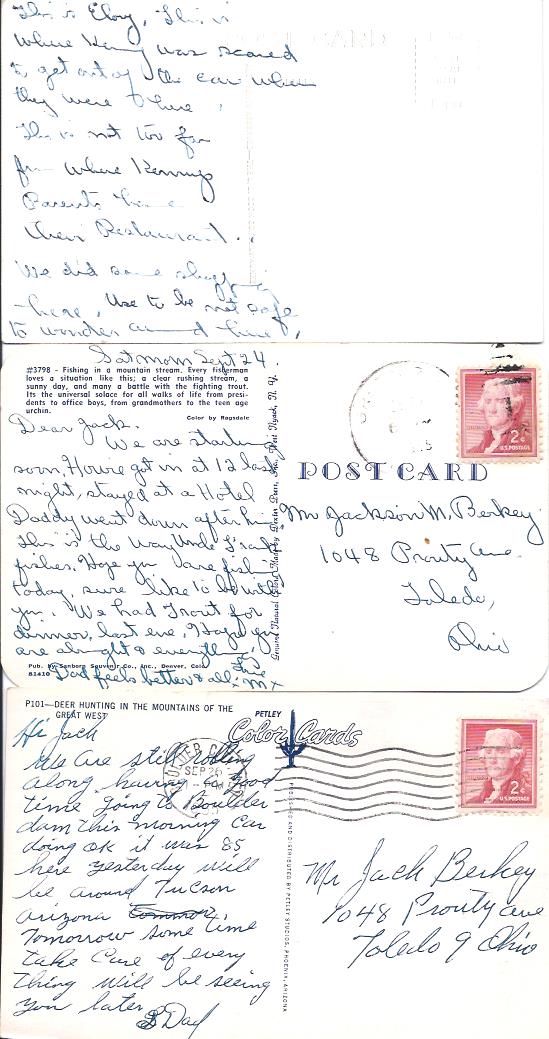 This is Eloy, This is
Where Kenny was scared
to get out of the car when
they were there,
This is not too far
from where Kennys
Parents have
their Restaurant.
We did some shopping
here, Use to be not safe
to wonder around here,
POST CARD
Sat morn Sept 24
#3798 - Fishing in a mountain stream. Every fisherman
loves a situation like this; a clear rushing stream, a
sunny day, and many a battle with the fighting trout.
Its the universal solace for all walks of life from presi-
dents to office boys, from grandmothers to the teen age
urchin.
Color by Ragsdale
Dear Jack.
We are starting
soon, Howie got in at 12 last
night, stayed at a Hotel
Daddy went down after him
This is the way Uncle Frank
fishes. Hope you are fishing
today, sure like to be with
you. We had Trout for
dinner, last eve, Hope you
are alright & everything
fine
Dad feels better & all. M x
Pub. by Sanborn Souvenir Co., Inc., Denver, Colo.
81410
Genuine Natural Color Made by Dexter Press, Inc., West Nyack, N. Y.
POST CARD
2¢
U.S. POSTAGE
Mr Jackson M. Berkey
1048 Prouty Ave.
Toledo,
Ohio
P101—DEER HUNTING IN THE MOUNTAINS OF THE
GREAT WEST
PETLEY
Color Cards
SEP 26
2¢
U.S. POSTAGE
Hi Jack
We Are still rolling
along having a good
time going to Boulder
dam this morning Car
doing ok it was 85
here yesterday will
be around Tucson
arizona
Tomorrow some time
take Care of every
thing will be seeing
you later
Dad
PRODUCED AND DISTRIBUTED BY PETLEY STUDIOS, PHOENIX, ARIZONA
Mr Jack Berkey
1048 Prouty ave
Toledo 9 Ohio